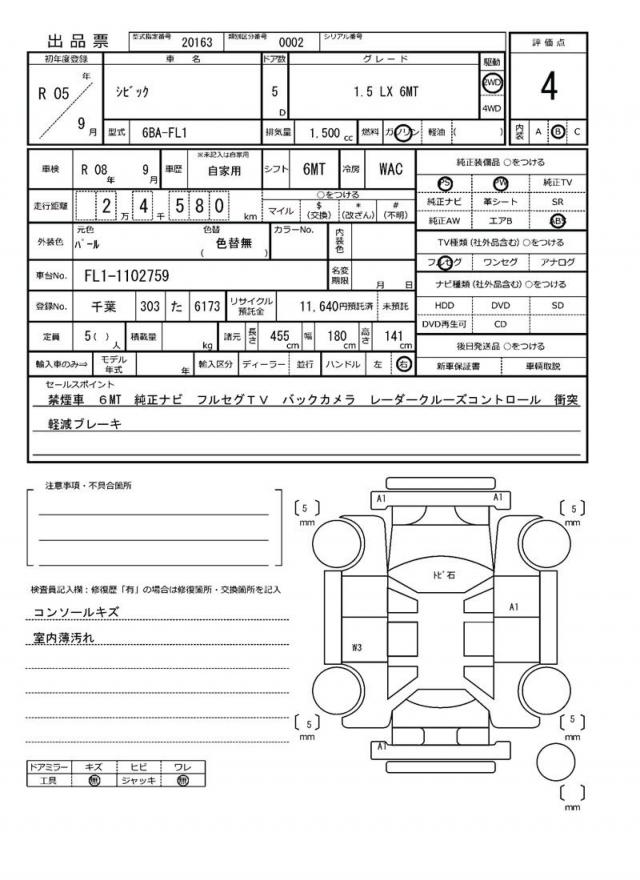 出品票 型式指定番号 20163 類別区分番号 0002 シリアル番号
評価点
4
初年度登録 車名 ドア数 グレード 駆動
R 05 年 9 月 シビック 5 D 1.5 LX 6MT 2WD 4WD
型式 6BA-FL1 排気量 1,500 cc 燃料 ガソリン 軽油 ( )
内装 A B C
車検 R 08 年 9 月 車歴 ※未記入は自家用 自家用 シフト 6MT 冷房 WAC
走行距離 2 万 4 千 580 km
○をつける
マイル $ (交換) * (改ざん) # (不明)
外装色 元色 パール 色替 ( 色替無 ) カラーNo. 内装色
車台No. FL1-1102759 名変期限 月 日
登録No. 千葉 303 た 6173 リサイクル預託金 11,640円預託済 未預託
定員 5( ) 人 積載量 kg 諸元 長さ 455 cm 幅 180 cm 高さ 141 cm
輸入車のみ⇒ モデル年式 年 輸入区分 ディーラー 並行 ハンドル 左 右
純正装備品 ○をつける
PS PW 純正TV
純正ナビ 革シート SR
純正AW エアB ABS
TV種類 (社外品含む) ○をつける
フルセグ ワンセグ アナログ
ナビ種類 (社外品含む) ○をつける
HDD DVD SD
DVD再生可 CD
後日発送品 ○をつける
新車保証書 車輌取説
セールスポイント
禁煙車 6MT 純正ナビ フルセグTV バックカメラ レーダークルーズコントロール 衝突
軽減ブレーキ
注意事項・不具合箇所
検査員記入欄:修復歴「有」の場合は修復箇所・交換箇所を記入
コンソールキズ
室内薄汚れ
ドアミラー キズ ヒビ ワレ
工具 無 ジャッキ 無
A1 A1
[ 5 ] mm
[ 5 ] mm
トビ石
A1
W3
[ 5 ] mm
[ 5 ] mm
A1
[ ] mm